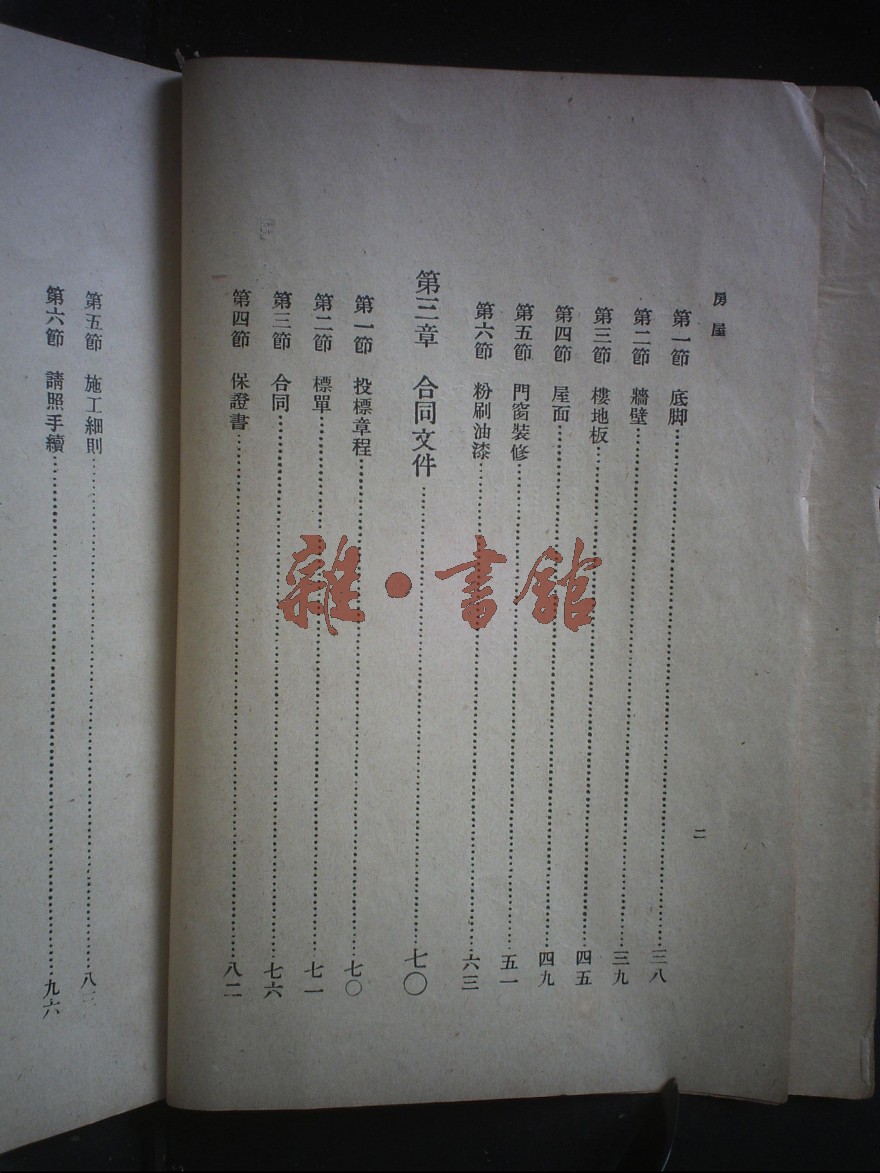 房屋
二
第一節 底脚 三八
第二節 牆壁 三九
第三節 樓地板 四五
第四節 屋面 四九
第五節 門窗裝修 五一
第六節 粉刷油漆 六三
第三章 合同文件 七〇
第一節 投標章程 七〇
第二節 標單 七一
第三節 合同 七六
第四節 保證書 八二
第五節 施工細則 八三
第六節 請照手續 九六
雜·書館